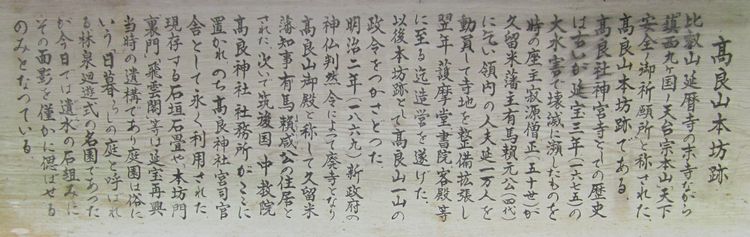 高良山本坊跡
比叡山延暦寺の末寺ながら
鎮西九ヶ国ノ天台宗本山天下
安全ノ御祈願所と称された、
高良山本坊跡である。
高良社神宮寺としての歴史
は古いが延宝三年(一六七五)の
大水害で壊滅に瀕したものを
時の座主寂源僧正(五十世)が
久留米藩主有馬頼元公(四代)
に乞い領内の人夫延一万人を
動員して寺地を整備拡張し
翌年護摩堂書院客殿等
に至る迄造営を遂げた。
以後本坊跡とで高良山一山の
政令をつかさどった
明治二年(一八六九)新政府の
神仏判然令によって廃寺となり
高良山御殿と称して久留米
藩知事有馬頼咸公の住居と
された、次いで筑後国一中教院
高良神社社務所がここに
置かれのち高良神社宮司官
舎として永く利用された
現存する石垣石畳や本坊門
裏門、飛雲閣等は延宝再興
当時の遺構であり庭園は俗に
いう日暮らしの庭と呼ばれ
る林泉廻遊式の名園であった
が今日では遺水の石組みに
その面影を僅かに偲ばせる
のみとなっている。